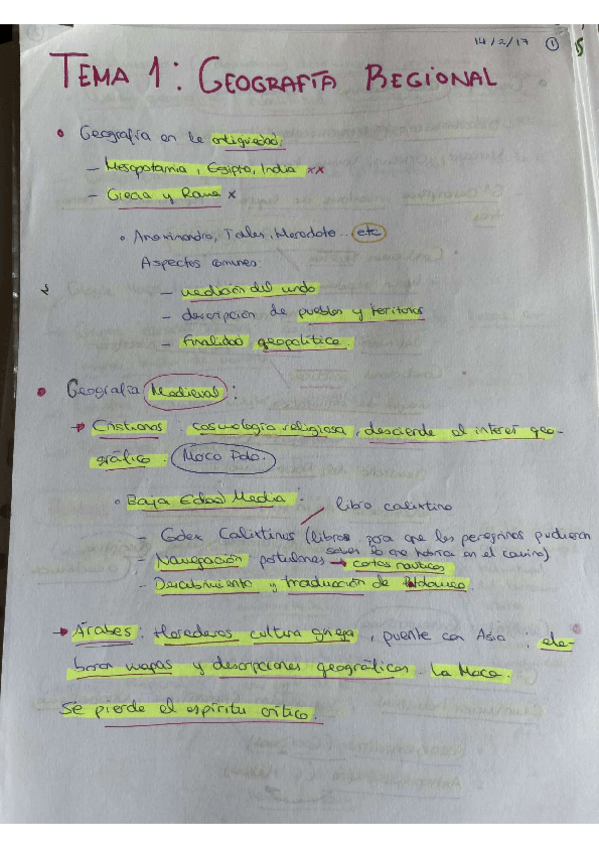 14/2/17 1
15
TEMA 1: GEOGRAFÍA REGIONAL
• Geografía en la antiguedad:
– Mesopotamia, Egipto, India xx
– Grecia y Roma x
• Anaximandro, Tales, Herodoto... etc
Aspectos comunes
– medición del mundo
– descripción de pueblos y territorios
– finalidad geopolítica.
• Geografía Medieval:
→ Cristianos: cosmología religiosa, desciende el interés geo-
gráfico. Marco Polo.
• Baja Edad Media:
libro calixtino
– Codex Calixtinus (libros para que los peregrinos pudieran
saber lo que había en el camino)
– Navegación portulanos → cartas náuticas
– Descubrimiento y traducción de Ptolomeo.
→ Árabes: Herederos cultura griega, puente con Asia; ela-
boran mapas y descripciones geográficas. La Meca.
Se pierde el espíritu crítico.